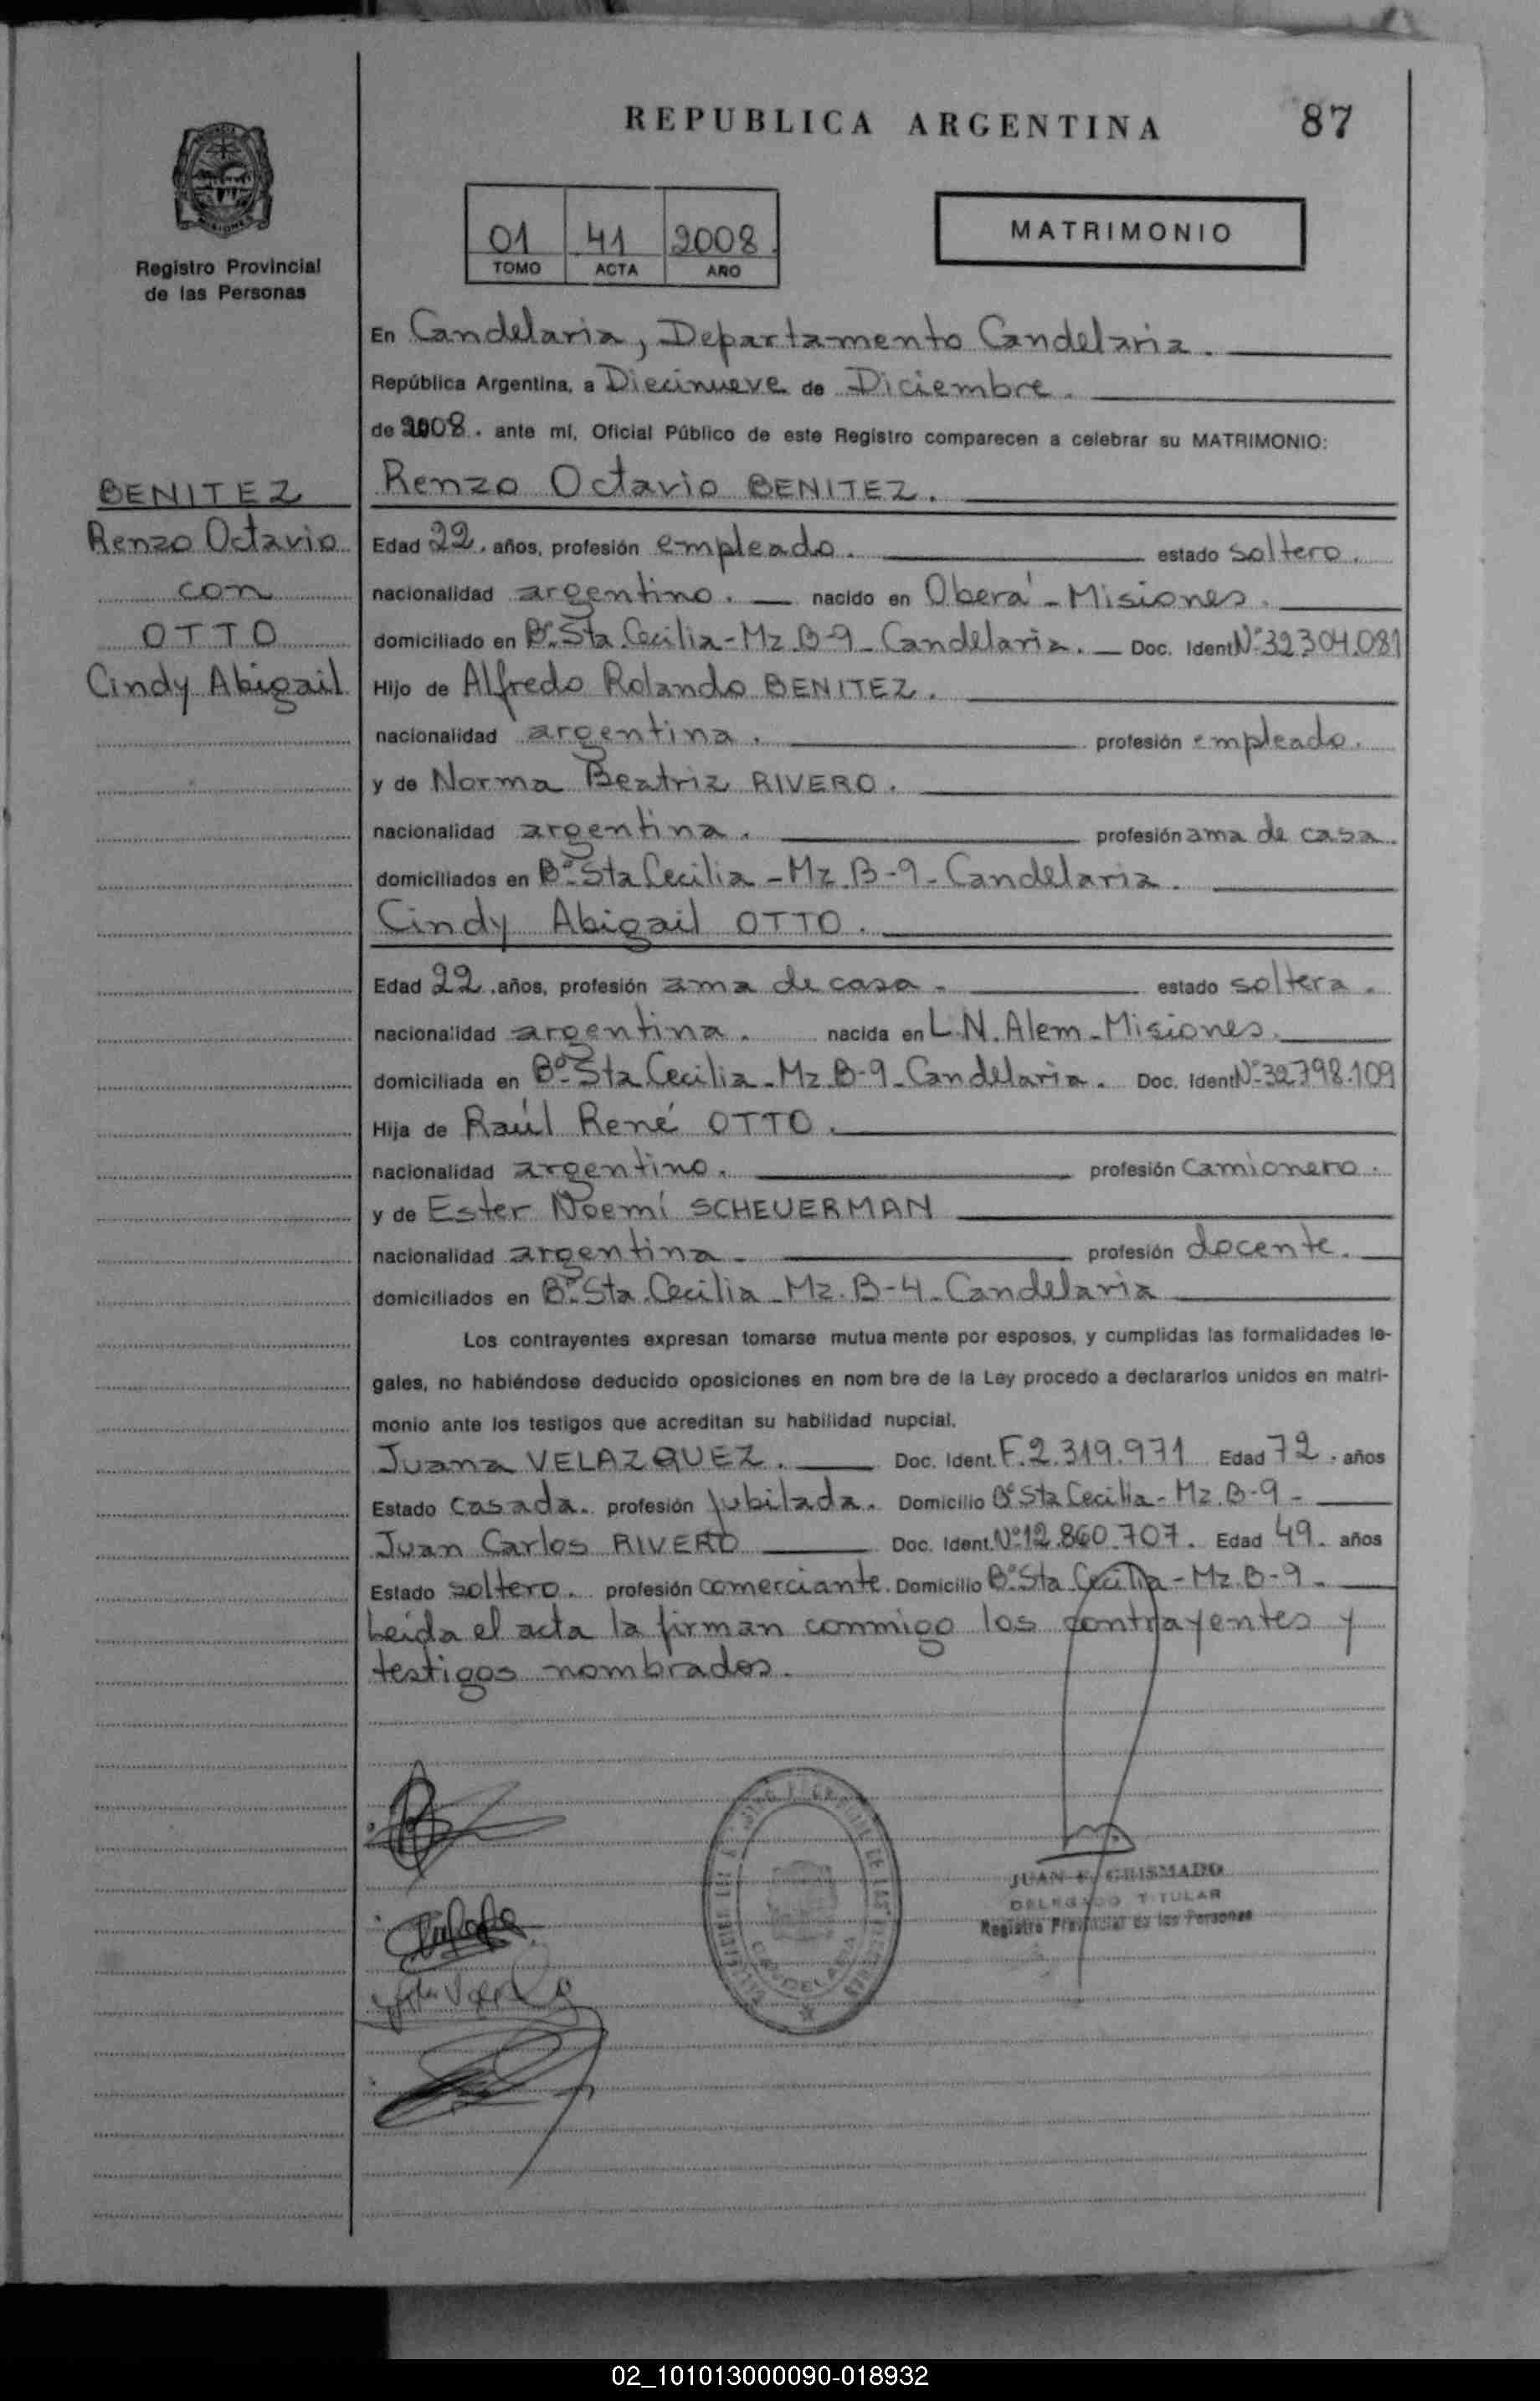 REPUBLICA ARGENTINA 87
01 41 2008
TOMO ACTA AÑO
MATRIMONIO
Registro Provincial
de las Personas
En Candelaria, Departamento Candelaria.
República Argentina, a Diecinueve de Diciembre.
de 2008. ante mí, Oficial Público de este Registro comparecen a celebrar su MATRIMONIO:
BENITEZ
Renzo Octavio
con
OTTO
Cindy Abigail
Renzo Octavio BENITEZ.
Edad 22. años, profesión empleado. estado soltero.
nacionalidad argentino. nacido en Oberá - Misiones.
domiciliado en Bº Sta. Cecilia - Mz. B-9 - Candelaria. Doc. Ident Nº 32.304.081
Hijo de Alfredo Rolando BENITEZ.
nacionalidad argentina. profesión empleado.
y de Norma Beatriz RIVERO.
nacionalidad argentina. profesión ama de casa.
domiciliados en Bº Sta Cecilia - Mz. B-9 - Candelaria.
Cindy Abigail OTTO.
Edad 22. años, profesión ama de casa. estado soltera.
nacionalidad argentina. nacida en L.N. Alem - Misiones.
domiciliada en Bº Sta Cecilia - Mz. B-9 - Candelaria. Doc. Ident Nº 32.798.109
Hija de Raúl René OTTO.
nacionalidad argentino. profesión camionero.
y de Ester Noemí SCHEUERMAN
nacionalidad argentina. profesión docente.
domiciliados en Bº Sta. Cecilia - Mz. B-4 - Candelaria
Los contrayentes expresan tomarse mutua mente por esposos, y cumplidas las formalidades le-
gales, no habiéndose deducido oposiciones en nom bre de la Ley procedo a declararlos unidos en matri-
monio ante los testigos que acreditan su habilidad nupcial.
Juana VELAZQUEZ. Doc. Ident. F. 2.319.971 Edad 72. años
Estado casada. profesión jubilada. Domicilio Bº Sta Cecilia - Mz. B-9 -
Juan Carlos RIVERO Doc. Ident. Nº 12.860.707. Edad 49. años
Estado soltero. profesión comerciante. Domicilio Bº Sta Cecilia - Mz. B-9 -
Leída el acta la firman conmigo los contrayentes y
testigos nombrados.
JUAN GRISMADO
DELEGADO TITULAR
Registro Provincial de las Personas
CANDELARIA
02_101013000090-018932